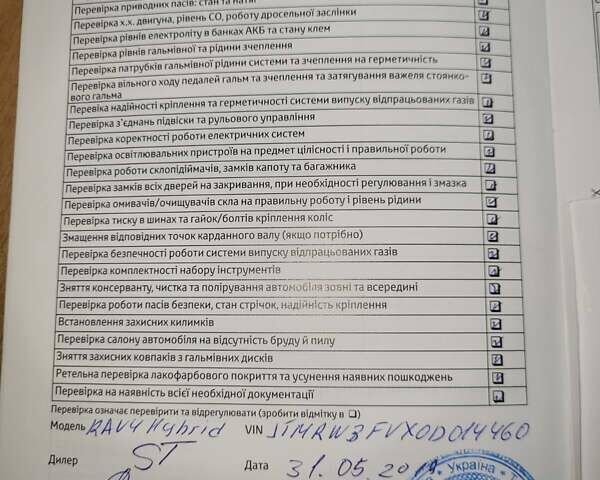 Перевірка приводних пасів: стан та натяг
Перевірка х.х. двигуна, рівень СО, роботу дросельної заслінки
Перевірка рівнів електроліту в банках АКБ та стану клем
Перевірка рівнів гальмівної та рідини зчеплення
Перевірка патрубків гальмівної рідини системи та зчеплення на герметичність
Перевірка вільного ходу педалей гальм та зчеплення та затягування важеля стоянко-
вого гальма
Перевіка надійності кріплення та герметичності системи випуску відпрацьованих газів
Перевірка з'єднань підвіски та рульового управління
Перевірка коректності роботи електричних систем
Перевірка освітлювальних пристроїв на предмет цілісності і правильної роботи
Перевірка роботи склопідіймачів, замків капоту та багажника
Перевірка замків всіх дверей на закривання, при необхідності регулювання і змазка
Перевірка омивачів/очищувачів скла на правильну роботу і рівень рідини
Перевірка тиску в шинах та гайок/болтів кріплення коліс
Змащення відповідних точок карданного валу (якщо потрібно)
Перевірка безпечності роботи системи випуску відпрацьованих газів
Перевірка комплектності набору інструментів
Зняття консерванту, чистка та полірування автомобіля зовні та всередині
Перевірка роботи пасів безпеки, стан стрічок, надійність кріплення
Встановлення захисних килимків
Перевірка салону автомобіля на відсутність бруду й пилу
Зняття захисних ковпаків з гальмівних дисків
Ретельна перевірка лакофарбового покриття та усунення наявних пошкоджень
Перевірка на наявність всієї необхідної документації
Перевірка означає перевірити та відрегулювати (зробити відмітку в ❏)
Модель RAV4 Hybrid VIN JTMRW3FVX0D014460
Дилер ST Дата 31.05.20
Україна